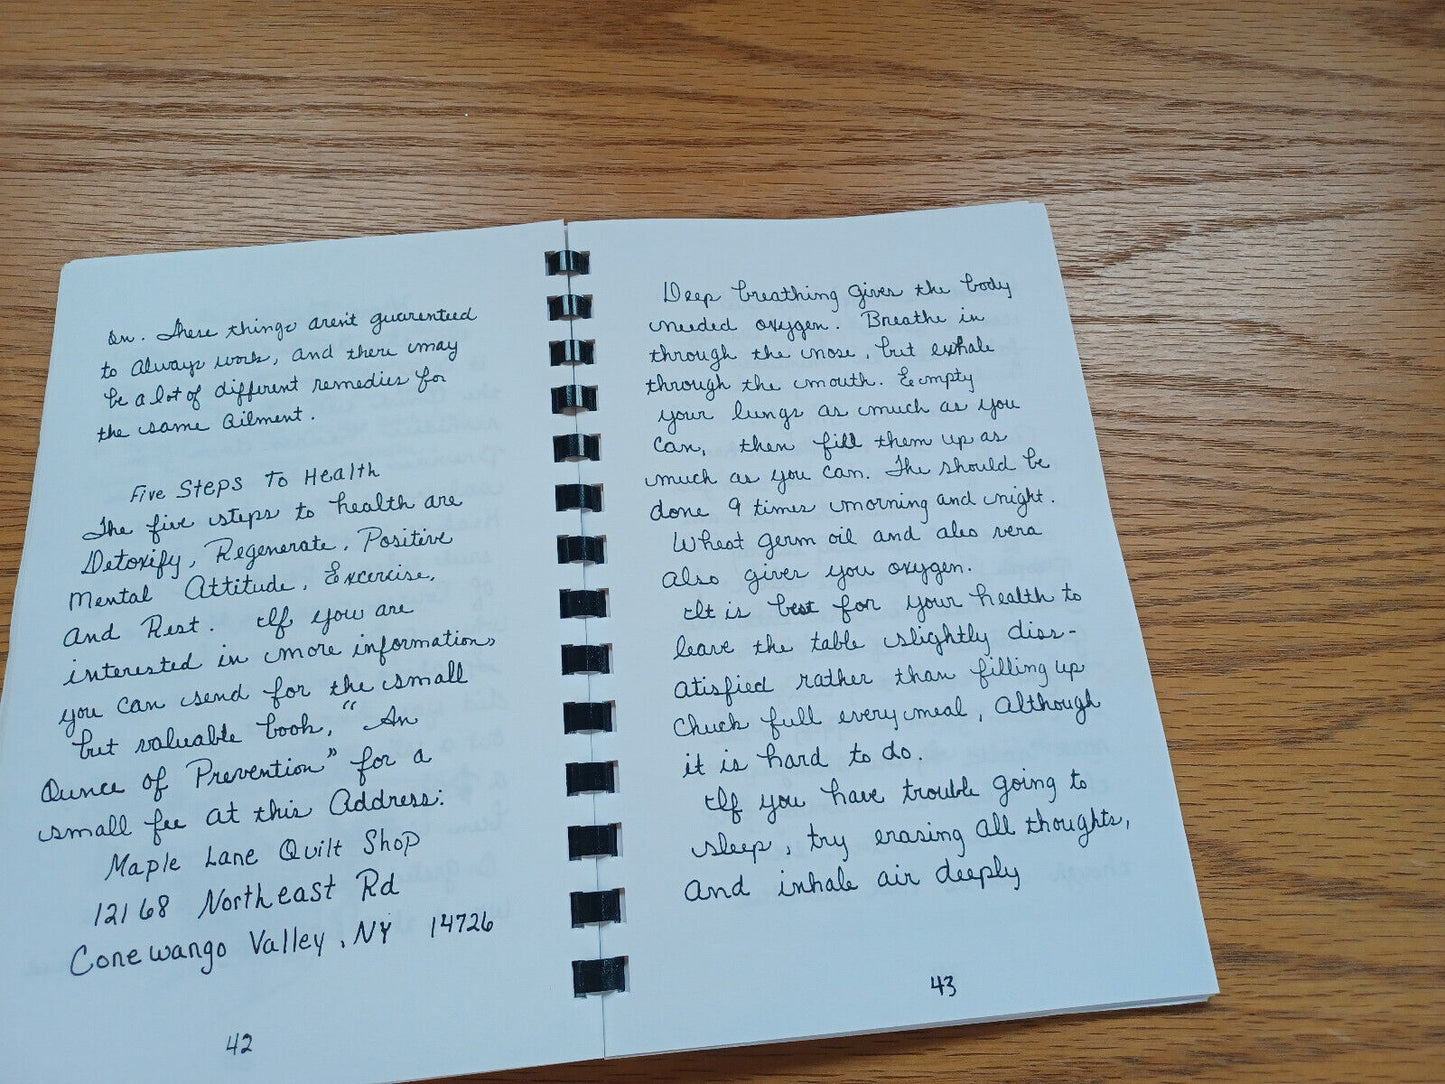 on. These things aren't guarenteed
to always work, and there may
be a lot of different remedies for
the same ailment.
Five Steps To Health
The five steps to health are
Detoxify, Regenerate, Positive
Mental Attitude, Excercise,
and Rest. If you are
interested in more information,
you can send for the small
but valuable book, "An
Ounce of Prevention" for a
small fee at this Address:
Maple Lane Quilt Shop
12168 Northeast Rd
Conewango Valley, NY 14726
42
Deep breathing gives the body
needed oxygen. Breathe in
through the nose, but exhale
through the mouth. Eempty
your lungs as much as you
can, then fill them up as
much as you can. The should be
done 9 times morning and night.
Wheat germ oil and aleo vera
also gives you oxygen.
It is best for your health to
leave the table slightly diss-
atisfied rather than filling up
chuck full every meal, although
it is hard to do.
If you have trouble going to
sleep, try erasing all thoughts,
and inhale air deeply
43